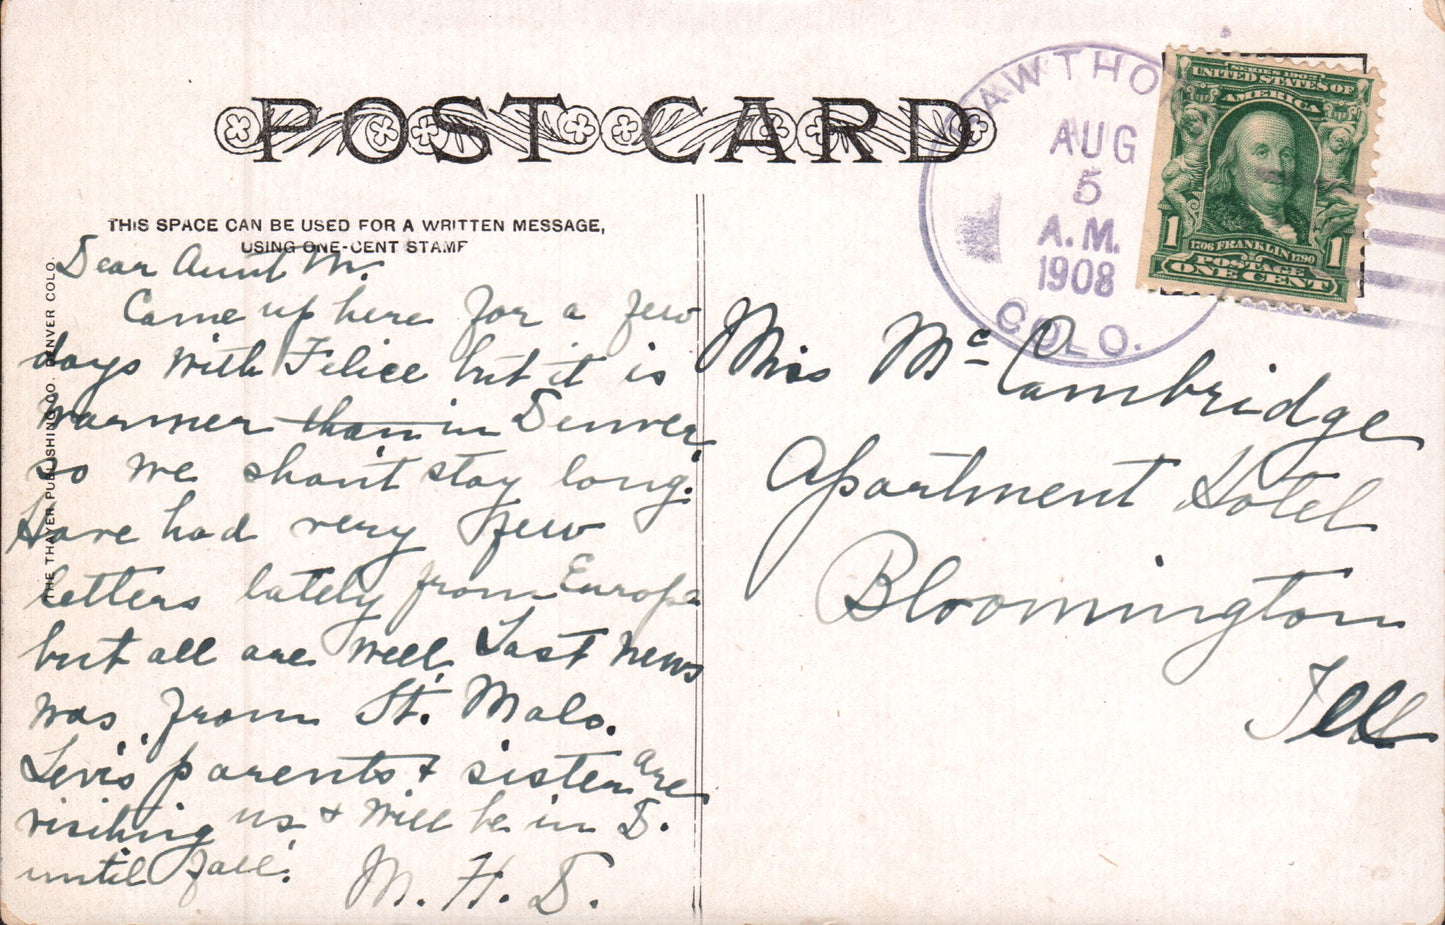 POST CARD
THIS SPACE CAN BE USED FOR A WRITTEN MESSAGE,
USING ONE-CENT STAMP
THE THAYER PUBLISHING CO. DENVER COLO.
Dear Aunt M.
Came up here for a few
days with Felice but it is
warmer than in Denver
so we shan't stay long.
Have had very few
letters lately from Europe
but all are well. Last news
was from St. Malo.
Levi's parents & sister are
visiting us & will be in D.
until fall.
M. H. D.
AWTHO
AUG
5
A.M.
1908
COLO.
SERIES 1902
UNITED STATES OF
AMERICA
1706 FRANKLIN 1790
POSTAGE
1 ONE CENT 1
Miss McCambridge
Apartment Hotel
Bloomington
Ill